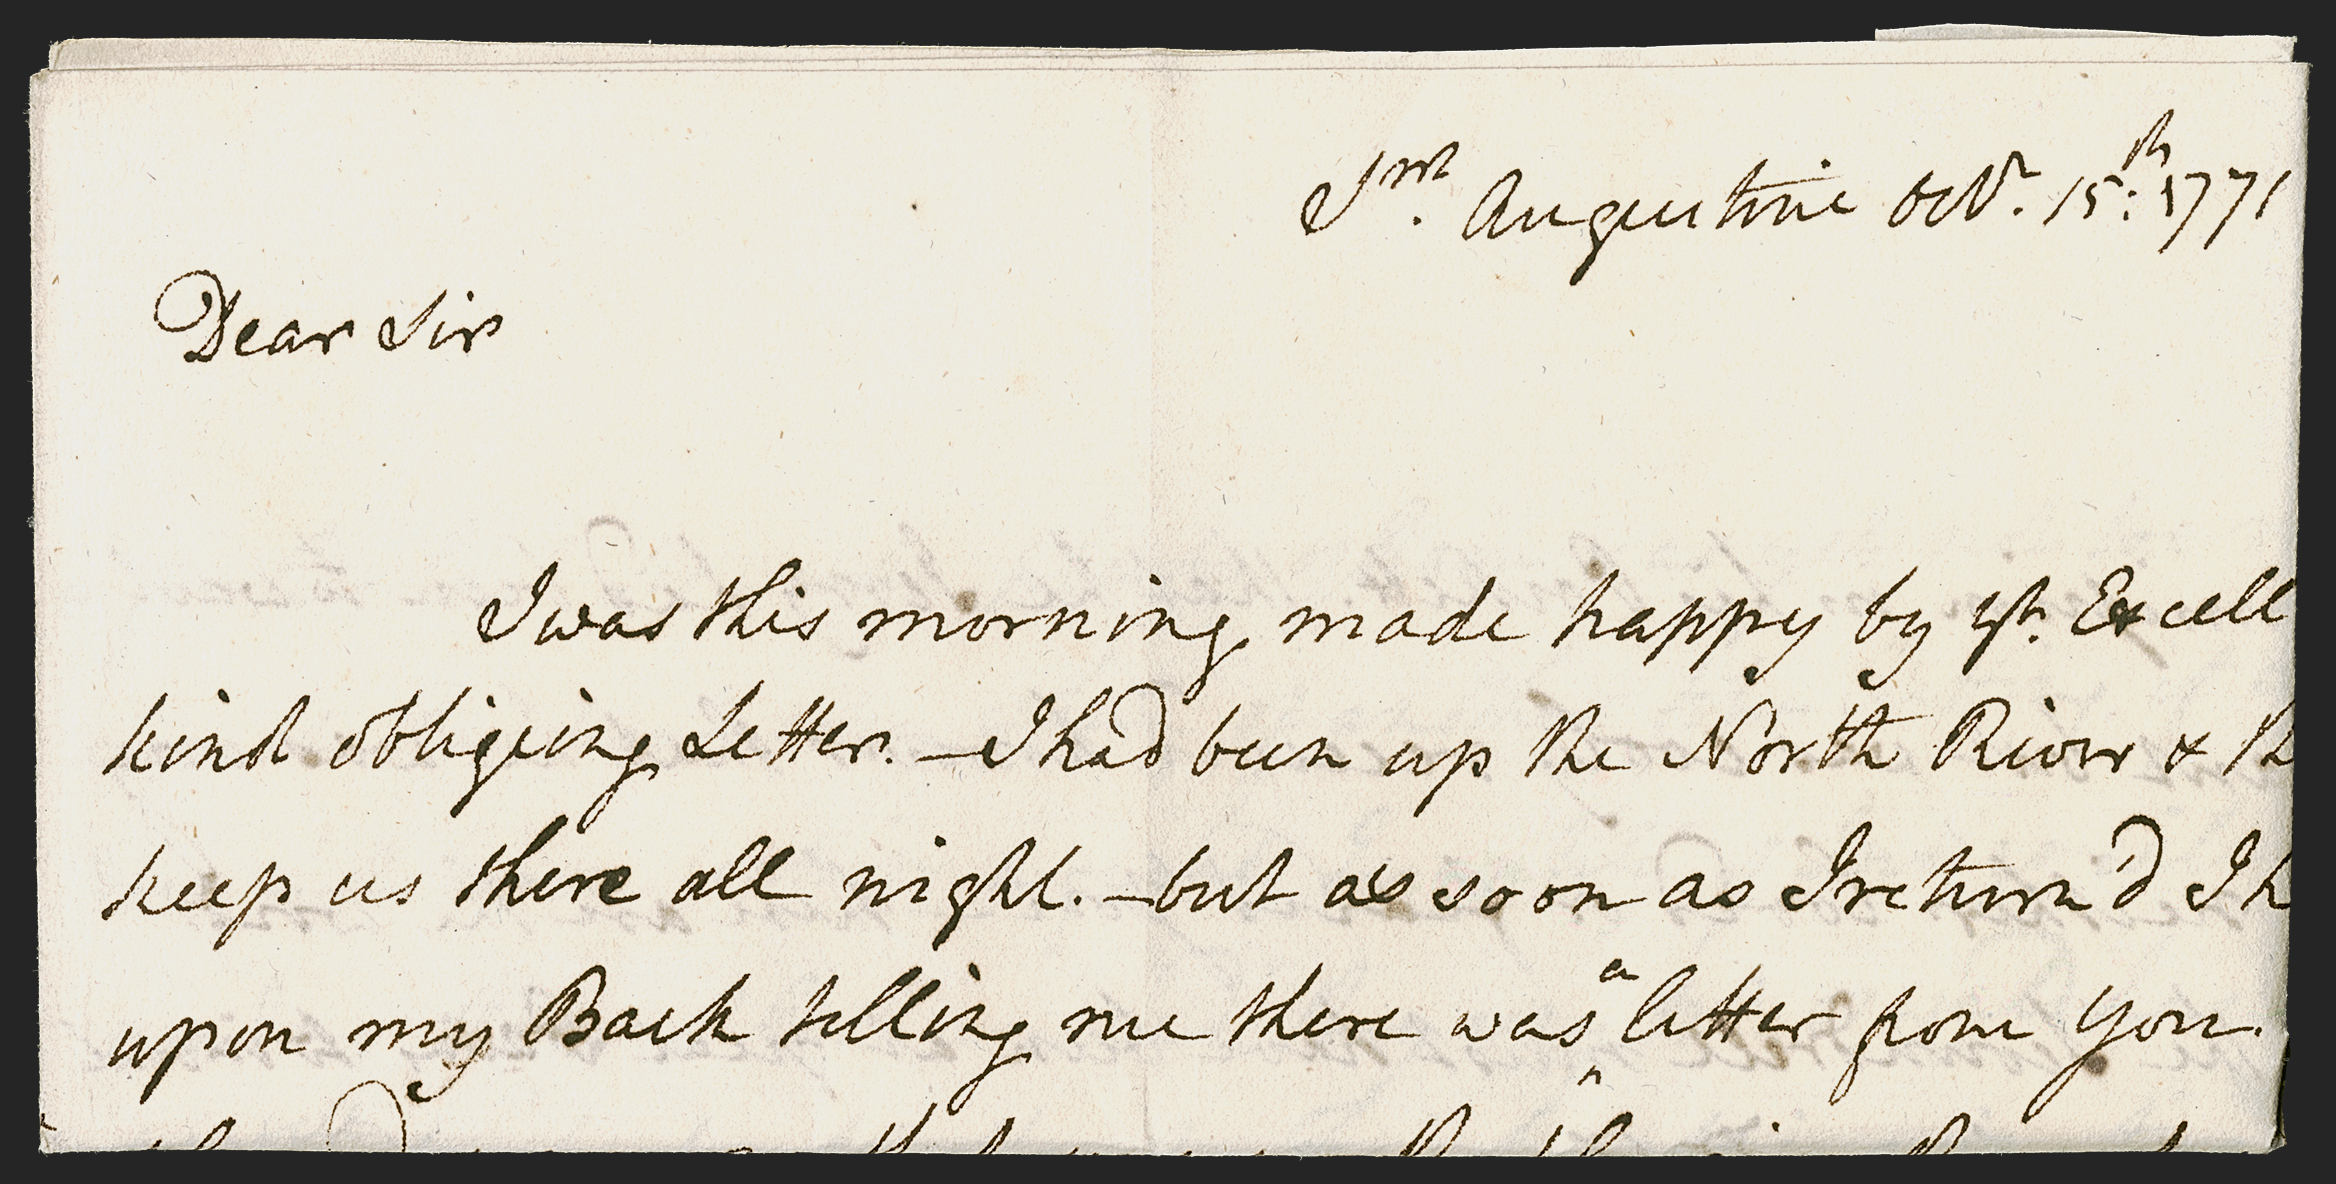 Snt. Augustine Octr. 15th: 1771
Dear Sir
I was this morning made happy by yr. Excell
kind obligeing Letter. – I had been up the North River &
keep us there all night. – but as soon as I return'd I h
upon my Back telling me there was a letter from you.